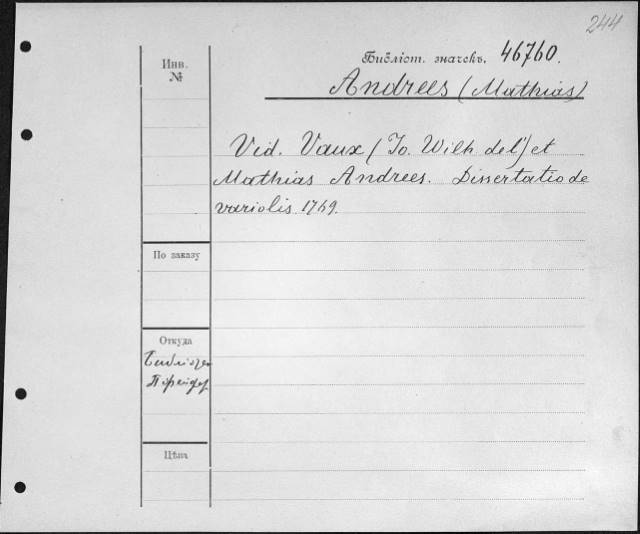 244
Библіот. значекъ. 46760.
Инв. №
Andrees (Mathias)
Vid. Vaux (Jo. Wilh. del') et
Mathias Andrees. Dissertatio de
variolis. 1769.
По заказу
Откуда
Цѣна